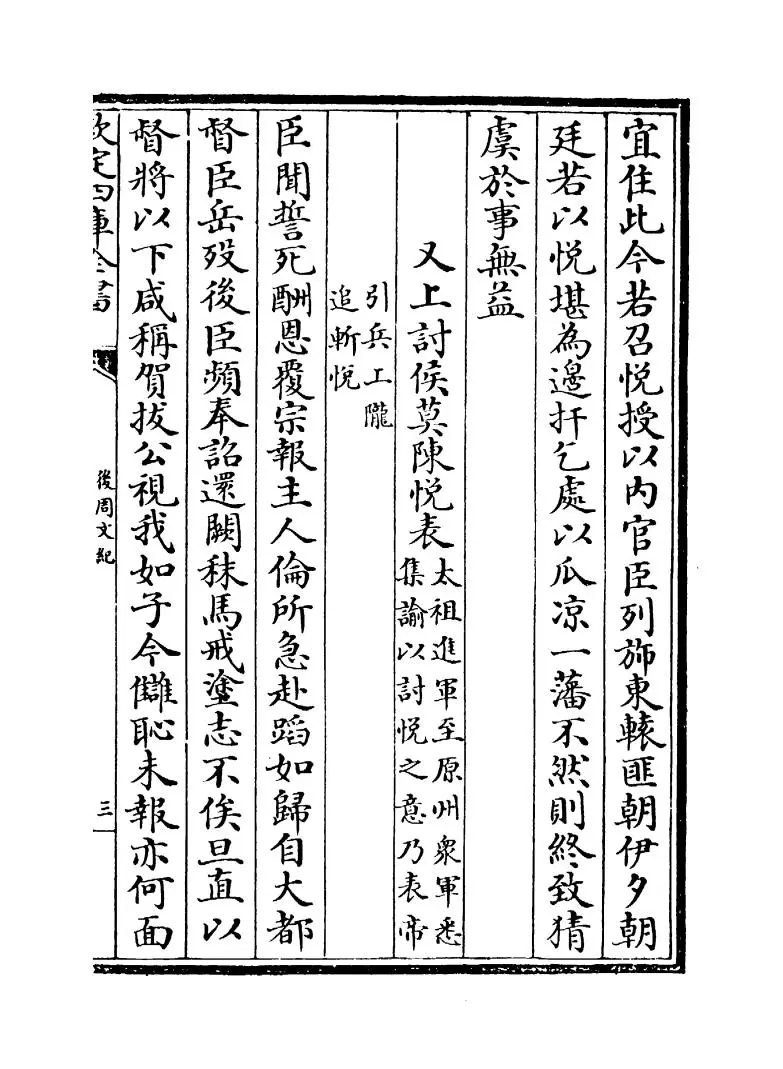 宜住此今若召悦授以内官臣列斾東轅匪朝伊夕朝
廷若以悦堪為邊扞乞處以瓜凉一藩不然則終致猜
虞於事無益
又上討侯莫陳悦表
太祖進軍至原州衆軍悉
集諭以討悦之意乃表帝
引兵上隴
追斬悦
臣聞誓死酬恩覆宗報主人倫所急赴蹈如歸自大都
督臣岳殁後臣頻奉詔還闕秣馬戒塗志不俟旦直以
督將以下咸稱賀拔公視我如子今讎恥未報亦何面
欽定四庫全書
後周文紀
三